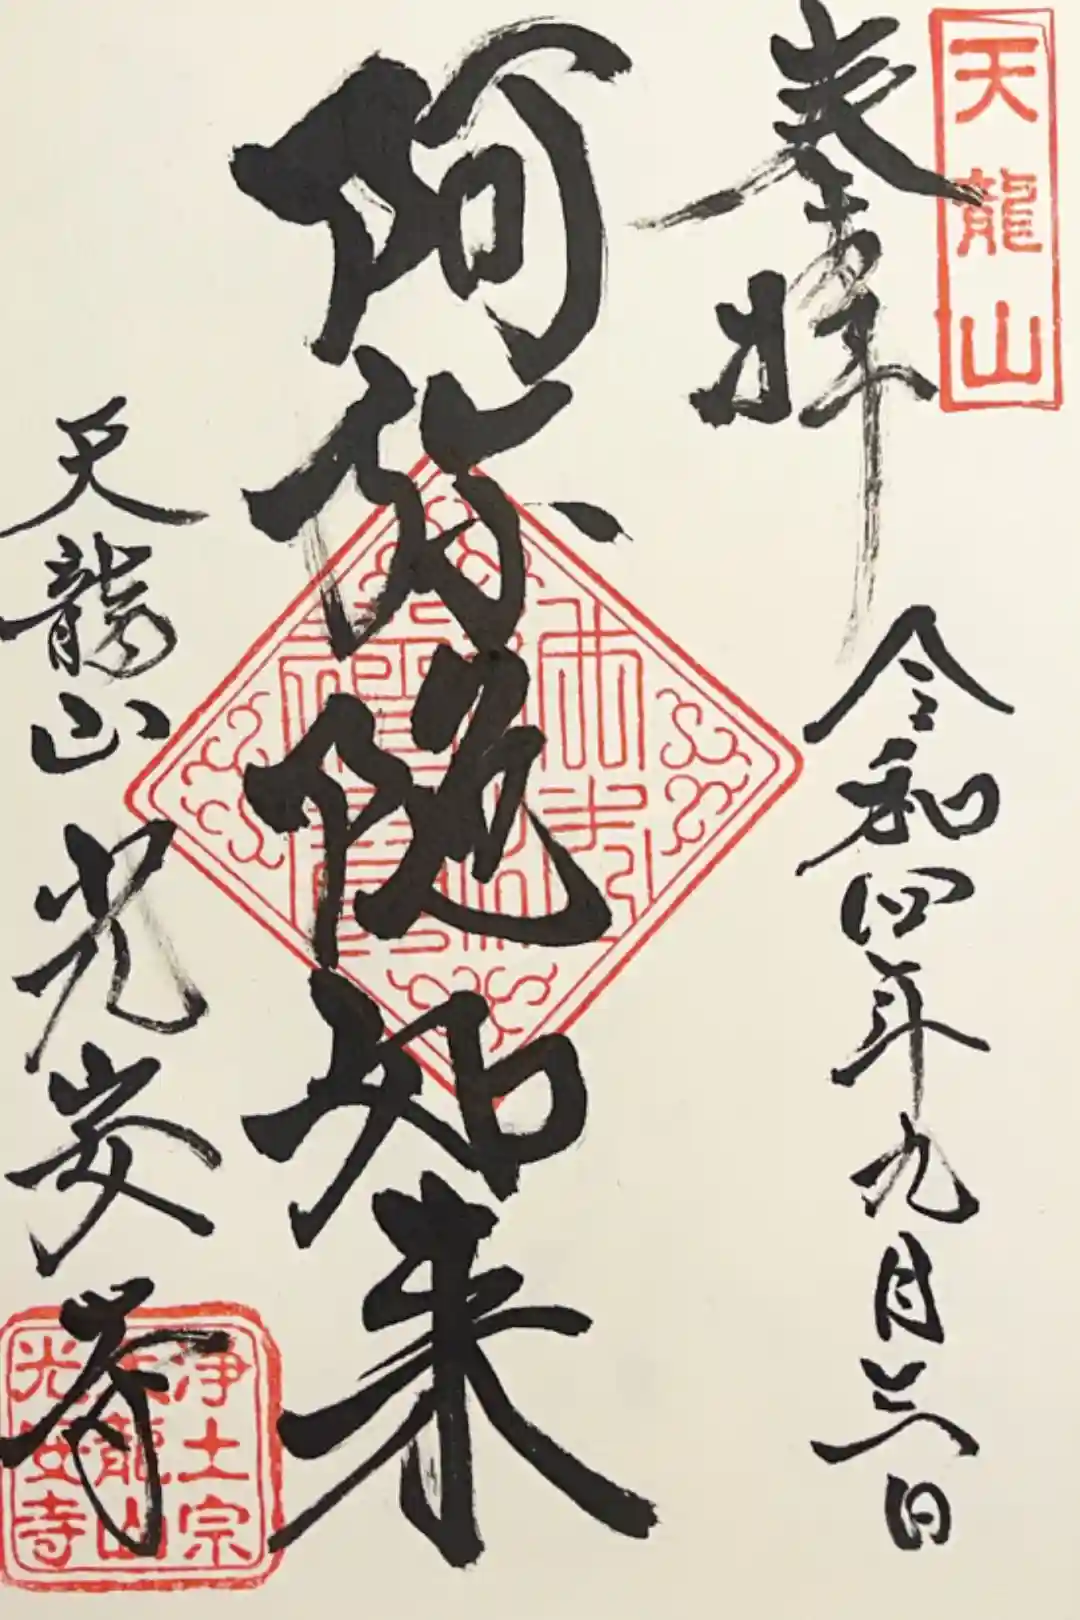 天龍山
奉拝
令和四年九月三日
阿弥陀如来
天龍山 光安寺
浄土宗
天龍山
光安寺